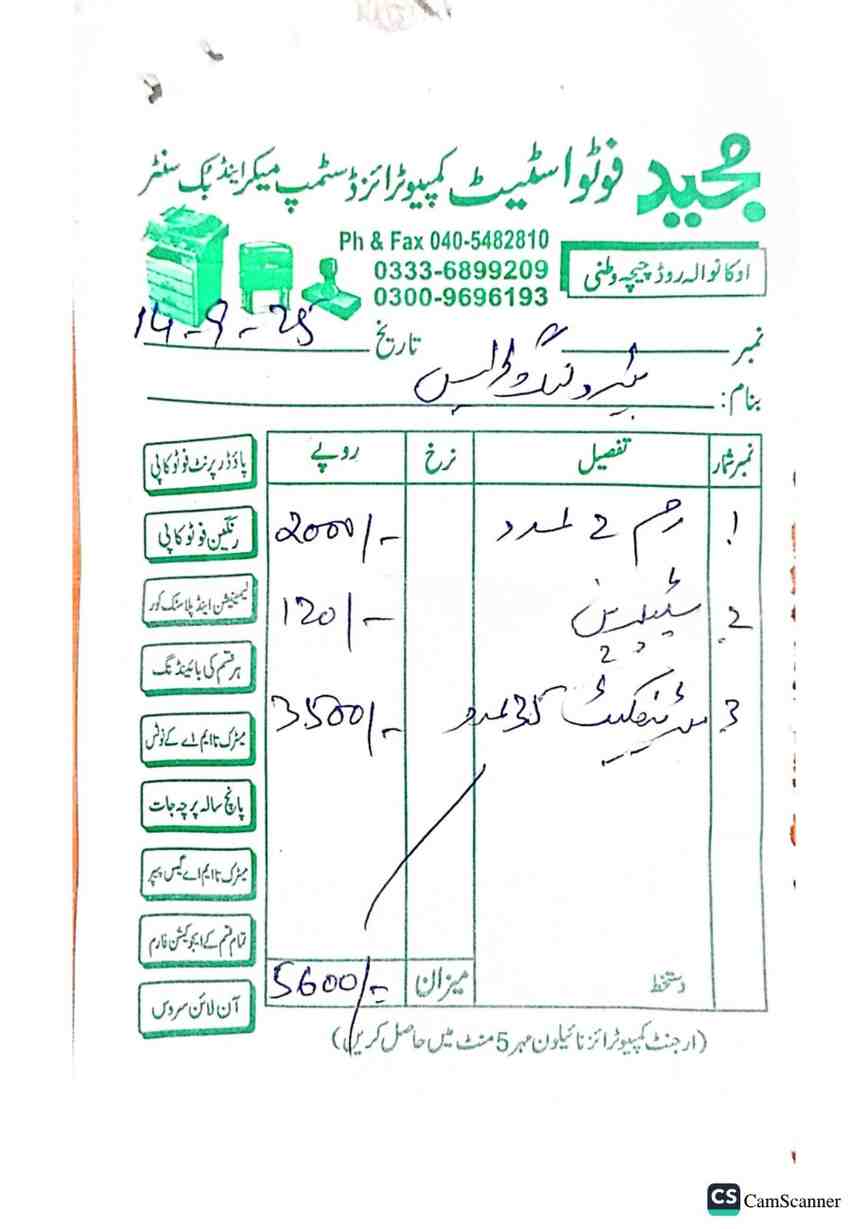 مجید فوٹو اسٹیٹ کمپیوٹرائزڈ سٹمپ میکر اینڈ بُک سنٹر
Ph & Fax 040-5482810
0333-6899209
0300-9696193
اوکانوالہ روڈ چیچہ وطنی
نمبر تاریخ 14-9-25
بنام:
نمبر شمار تفصیل نرخ روپے
1 رم 2 عدد 2000/-
2 2 عدد 120/-
3 سرٹیفکیٹ 35 عدد 3500/-
دستخط میزان 5600/-
پاؤڈر پرنٹ فوٹو کاپی
رنگین فوٹو کاپی
لیمینیشن اینڈ پلاسٹک کور
ہر قسم کی بائینڈنگ
میٹرک تا ایم اے کے نوٹس
پانچ سالہ پرچہ جات
میٹرک تا ایم اے گیس پیپر
تمام قسم کے ایجوکیشن فارم
آن لائن سروس
(ارجنٹ کمپیوٹرائز نائیلون مہر 5 منٹ میں حاصل کریں)
CS CamScanner